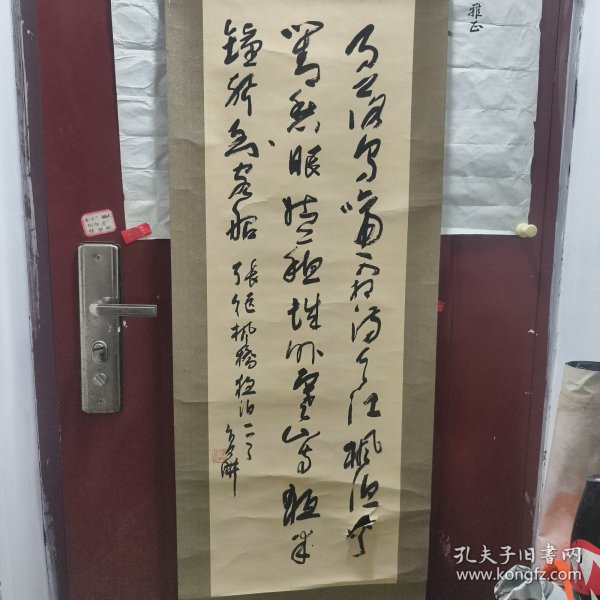 月落乌啼霜满天江枫渔火
对愁眠姑苏城外寒山寺夜半
钟声到客船
张继枫桥夜泊一首
雅正
孔夫子旧书网
www.kongfz.com